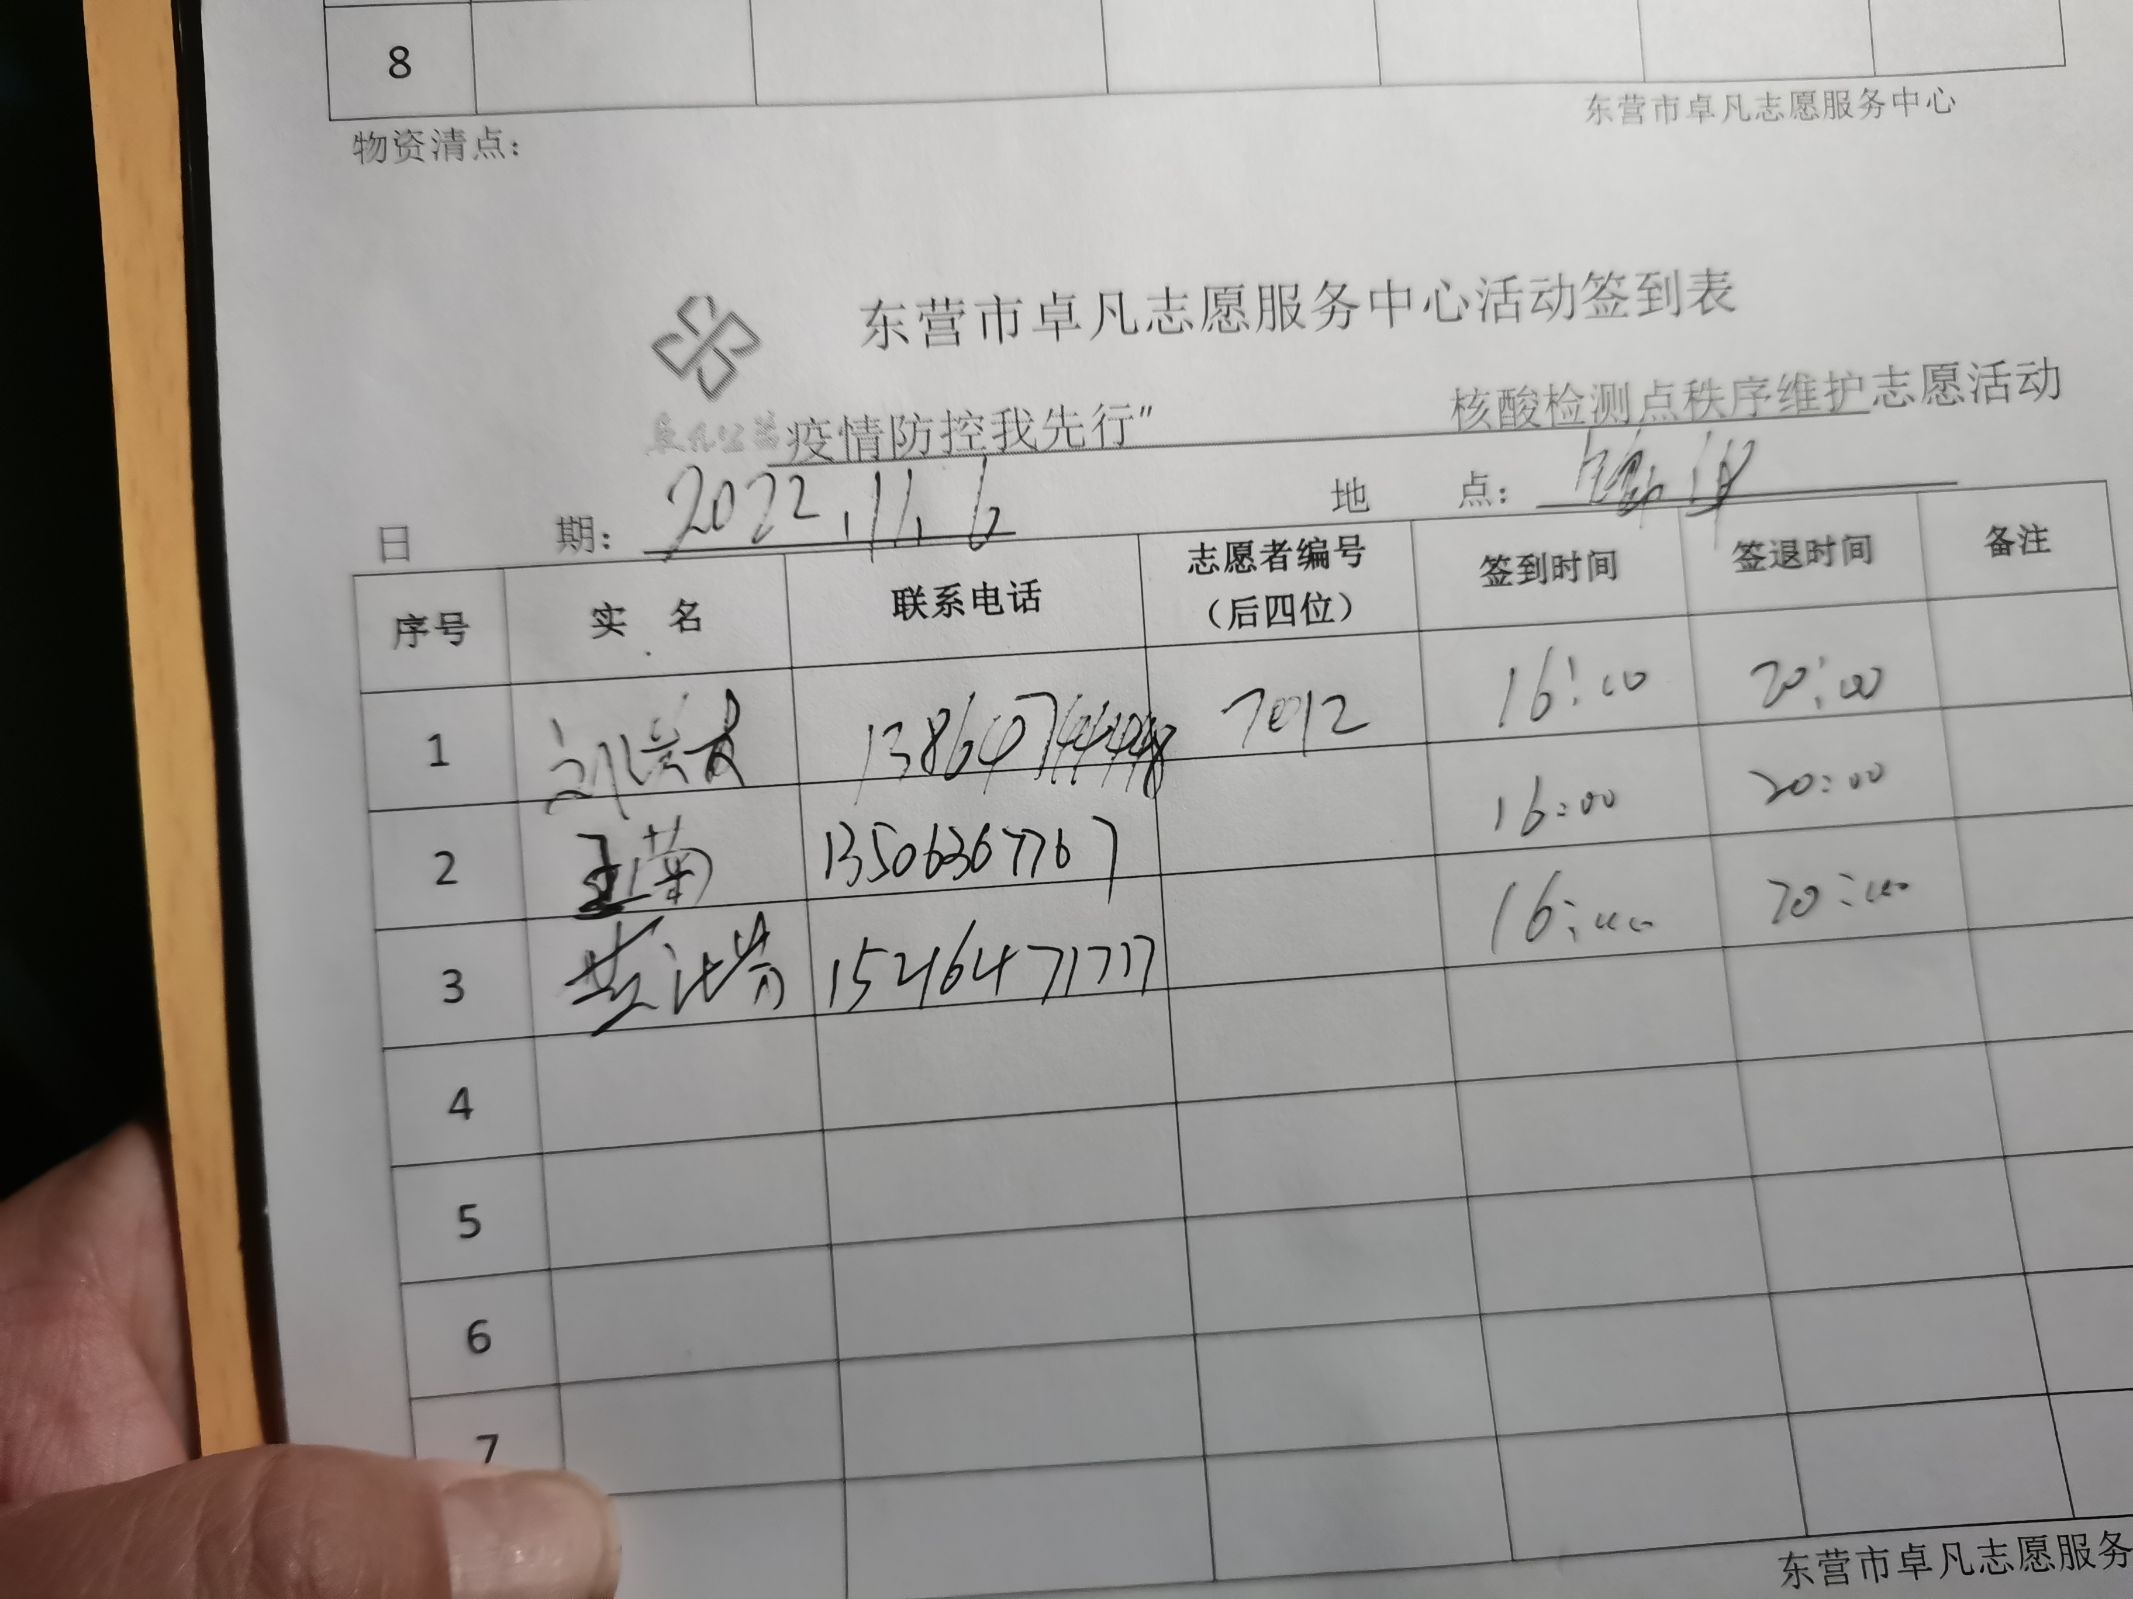 8
东营市卓凡志愿服务中心
物资清点：
东营市卓凡志愿服务中心活动签到表
卓凡公益
疫情防控我先行” 核酸检测点秩序维护志愿活动
日 期： 2022.11.6 地 点：
序号 实 名 联系电话 志愿者编号（后四位） 签到时间 签退时间 备注
1 7012 16:00 20:00
2 王菊 13506367767 16:00 20:00
3 1546471717 16:00 20:00
4
5
6
7
东营市卓凡志愿服务